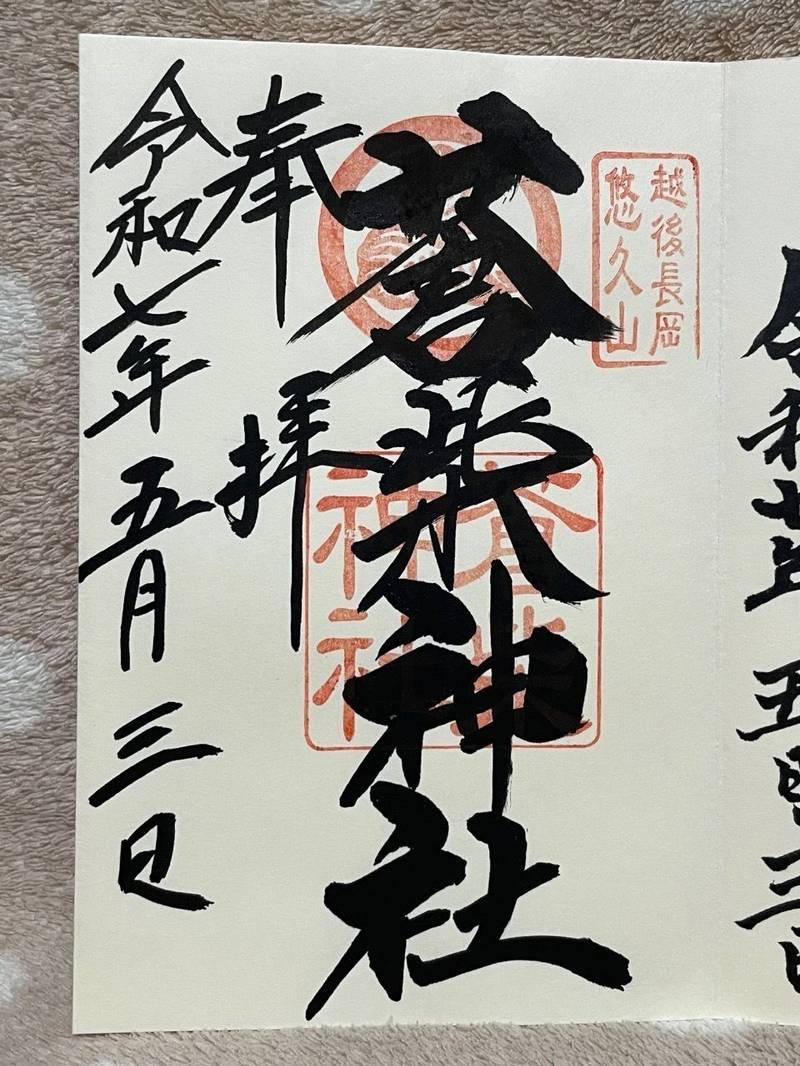 令和七年 五月三日
越後長岡
悠久山
蒼柴神社
蒼柴
神社
奉拝
令和七年五月三日